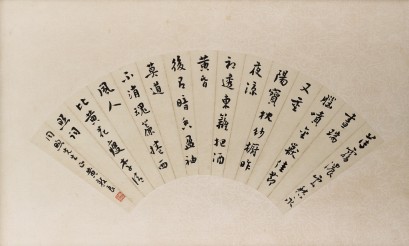 薄霧濃雲愁永
晝瑞
腦噴金獸佳節
又重
陽寶枕紗櫥昨
夜涼
初透東籬把酒
黃昏
後有暗香盈袖
莫道
不消魂簾捲西
風人
比黃花瘦李清
照詞
先生正